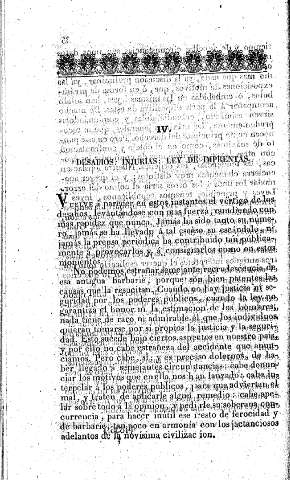 IV.
DESAFIOS: INJURIAS: LEY DE IMPRENTAS.
VUELVE á parecer en estos instantes el vértigo de los
desafios, levantándose con mas fuerza, cundiendo con
mas rapidez que nunca. Jamas ha sido tanto su núme-
ro, jamas se ha llevado á tal esceso su escándalo, ni
jamás la prensa periódica ha contribuido tan pública-
mente á provocarlos y á consignarlos como en estos
momentos.
No podemos estrañar semejante recrudescencia de
esa antigua barbarie, porque son bien patentes las
causas que la resucitan. Cuando no hay justicia ni se-
guridad por los poderes públicos, cuando la ley no
garantiza el honor ni la estimacion de los hombres,
nada tiene de raro ni admirable el que los individuos
quieran tomarse por sí propios la justicia y la seguri-
dad. Eso sucede bajo ciertos aspectos en nuestro pais,
y por eso no cabe estrañeza del accidente que anun-
ciamos. Pero cabe, sí, y es preciso dolernos, de ha-
ber llegado á semejantes circunstancias: cabe denun-
ciar los motivos que en ella nos han lanzado: cabe in-
terpelar á los poderes públicos, para que adviertan el
mal, y traten de aplicarle algun remedio: cabe ape-
lar sobre todo á lo comun y pedirle su soberana con-
currencia, para hacer inútil ese resto de ferocidad y
de barbarie, tan poco en armonía con los jactanciosos
adelantos de la novísima civilizacion.